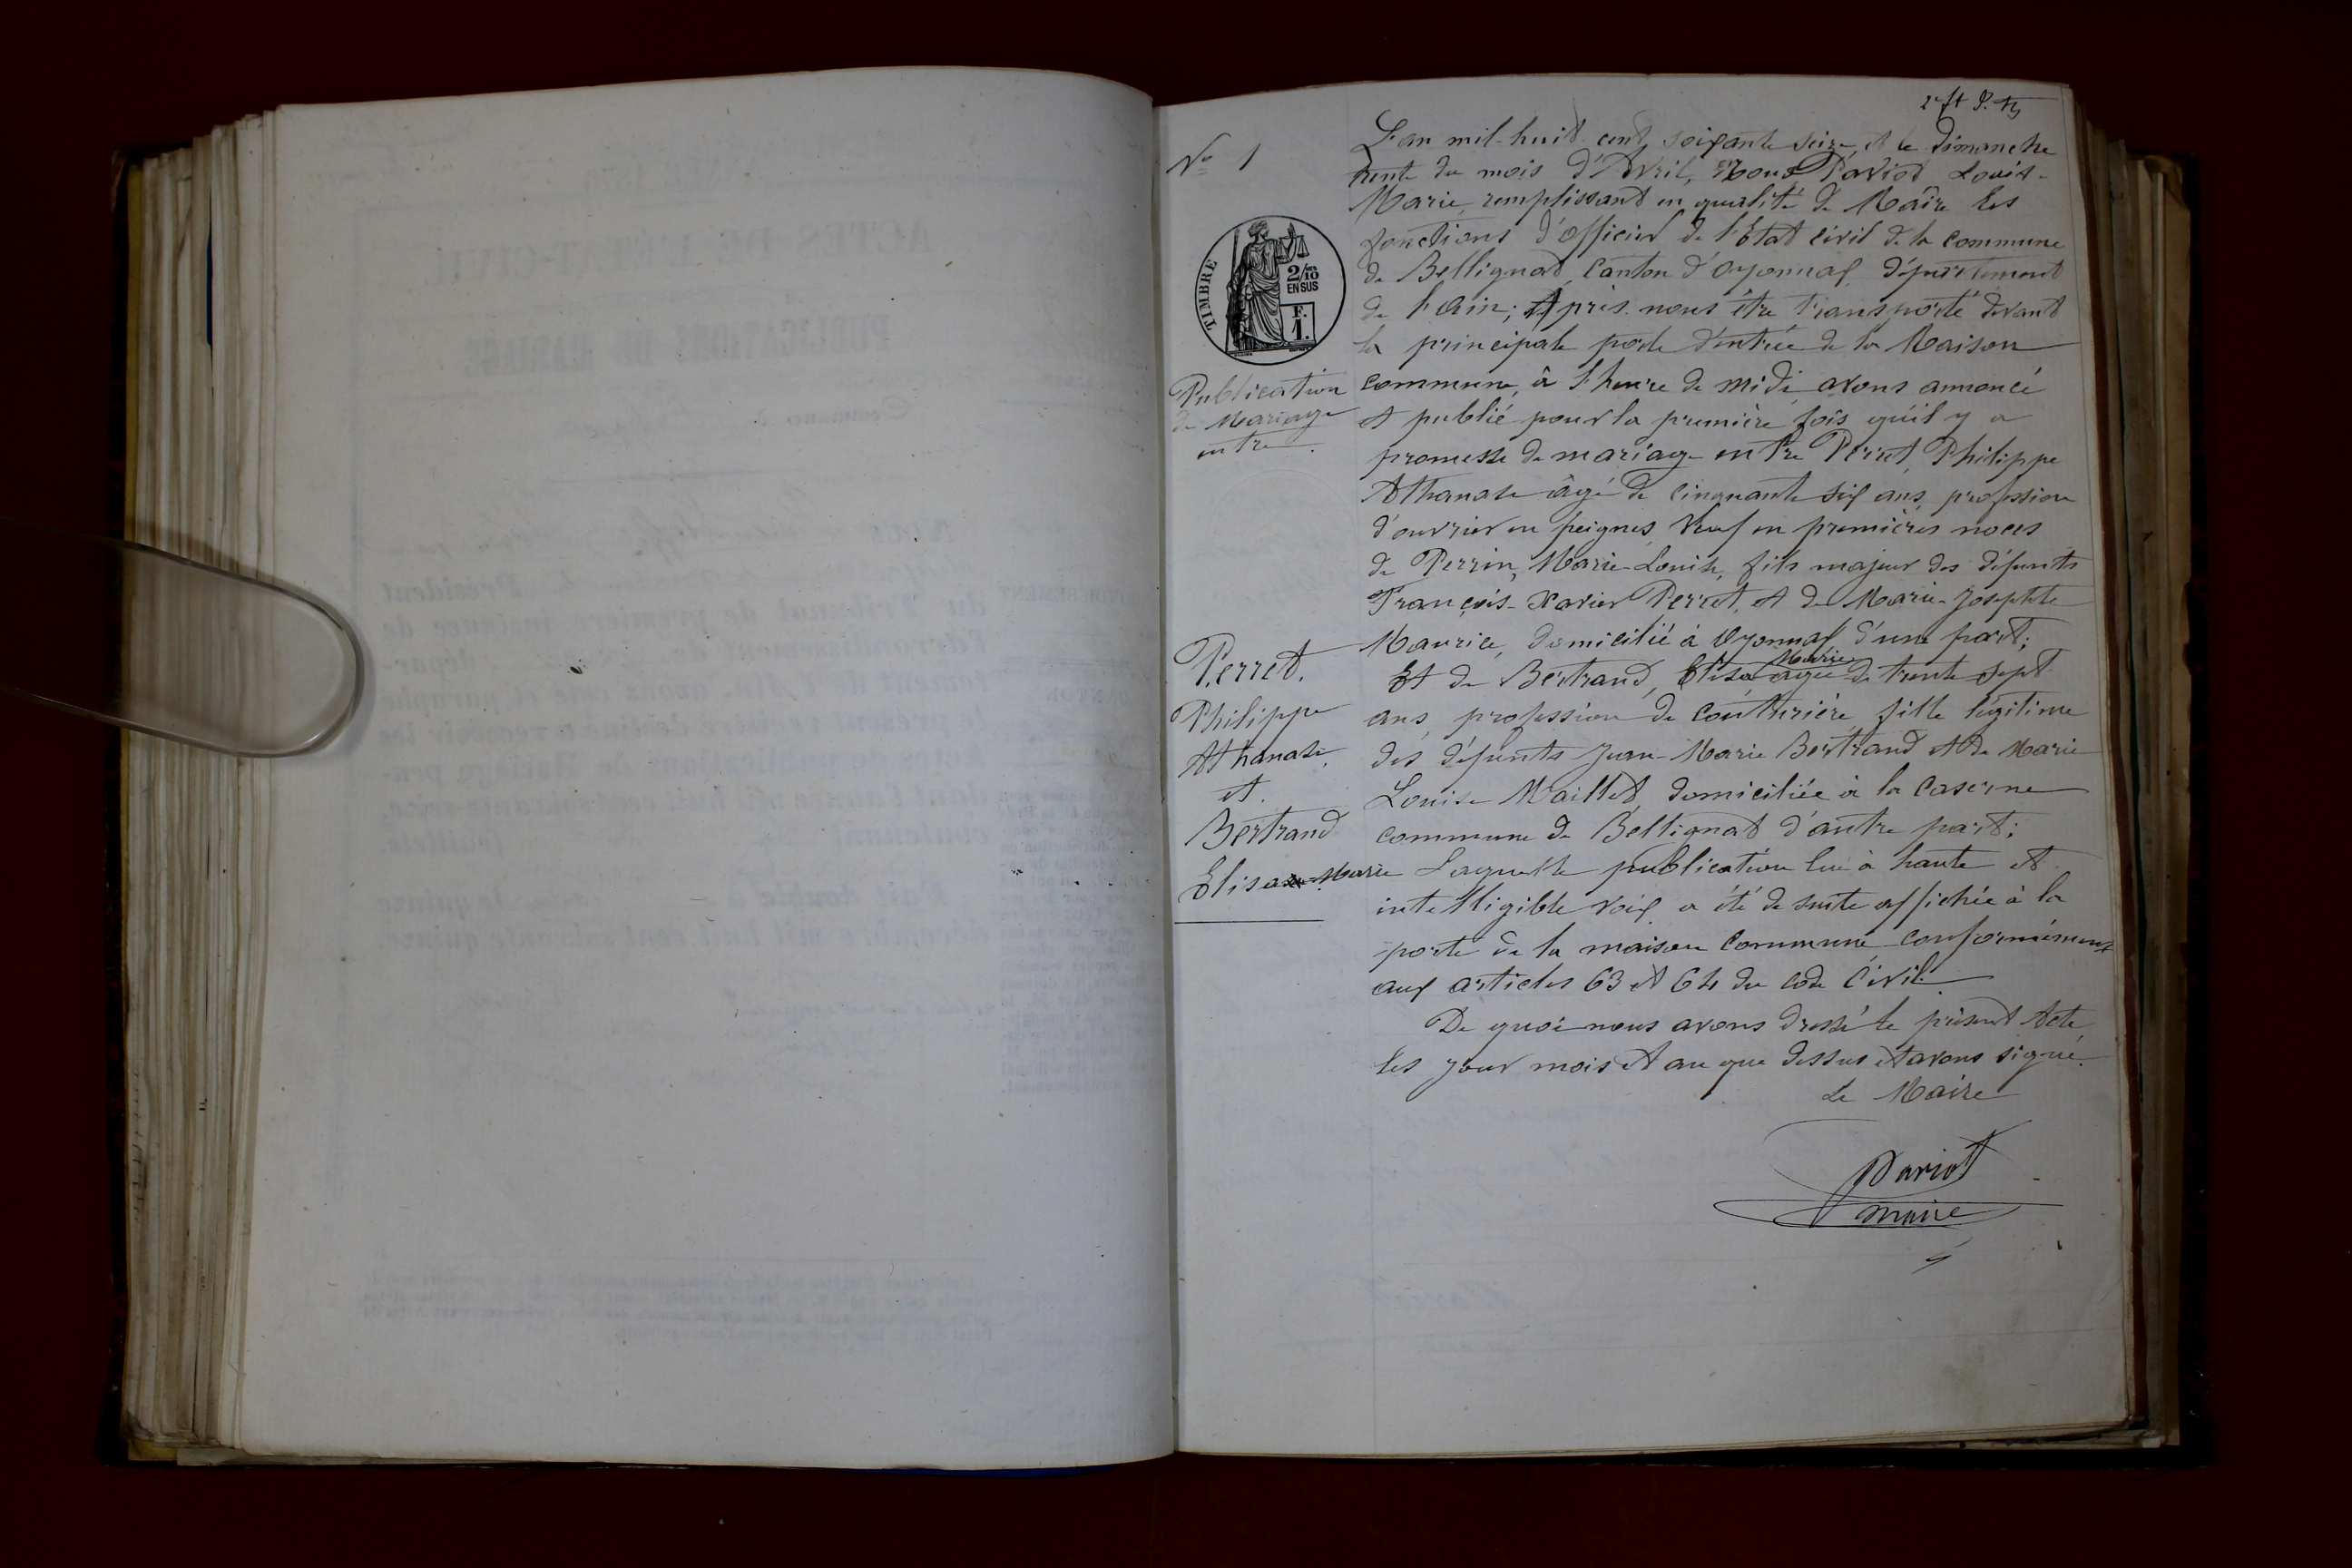 N° 1
TIMBRE
2/10
EN SUS
F.
1.
Publication
de Mariage
entre
Perret.
Philippe
Athanase.
et.
Bertrand
Elisa Marie
L'an mil-huit cent soixante seize, et le Dimanche
trente du mois d'Avril, Nous Pariod Louis-
Marie, remplissant en qualité de Maire les
fonctions d'officier de l'Etat civil de la commune
de Bellignat, canton d'Oyonnax, département
de l'Ain; Après nous être transporté devant
la principale porte d'entrée de la Maison
commune, à l'heure de midi, avons annoncé
et publié pour la première fois qu'il y a
promesse de mariage entre Perret, Philippe
Athanase âgé de cinquante six ans, profession
d'ouvrier en peignes, Veuf en premières noces
de Perrin, Marie-Louise, fils majeur des défunts
François-Xavier Perret, et de Marie-Josephte
Maurice, domicilié à Oyonnax d'une part;
Et de Bertrand, Elisa Marie agée de trente sept
ans, profession de couthurière, fille légitime
des défunts Jean-Marie Bertrand et de Marie
Louise Maillet, domiciliée à la Caserne
commune de Bellignat d'autre part;
Laquelle publication lue à haute et
intelligible voix a été de suite affichée à la
porte de la maison commune conformément
aux articles 63 et 64 du code Civil.
De quoi nous avons dressé le présent Acte
les jour mois et an que dessus et avons signé.
Le Maire
Pariod
maire